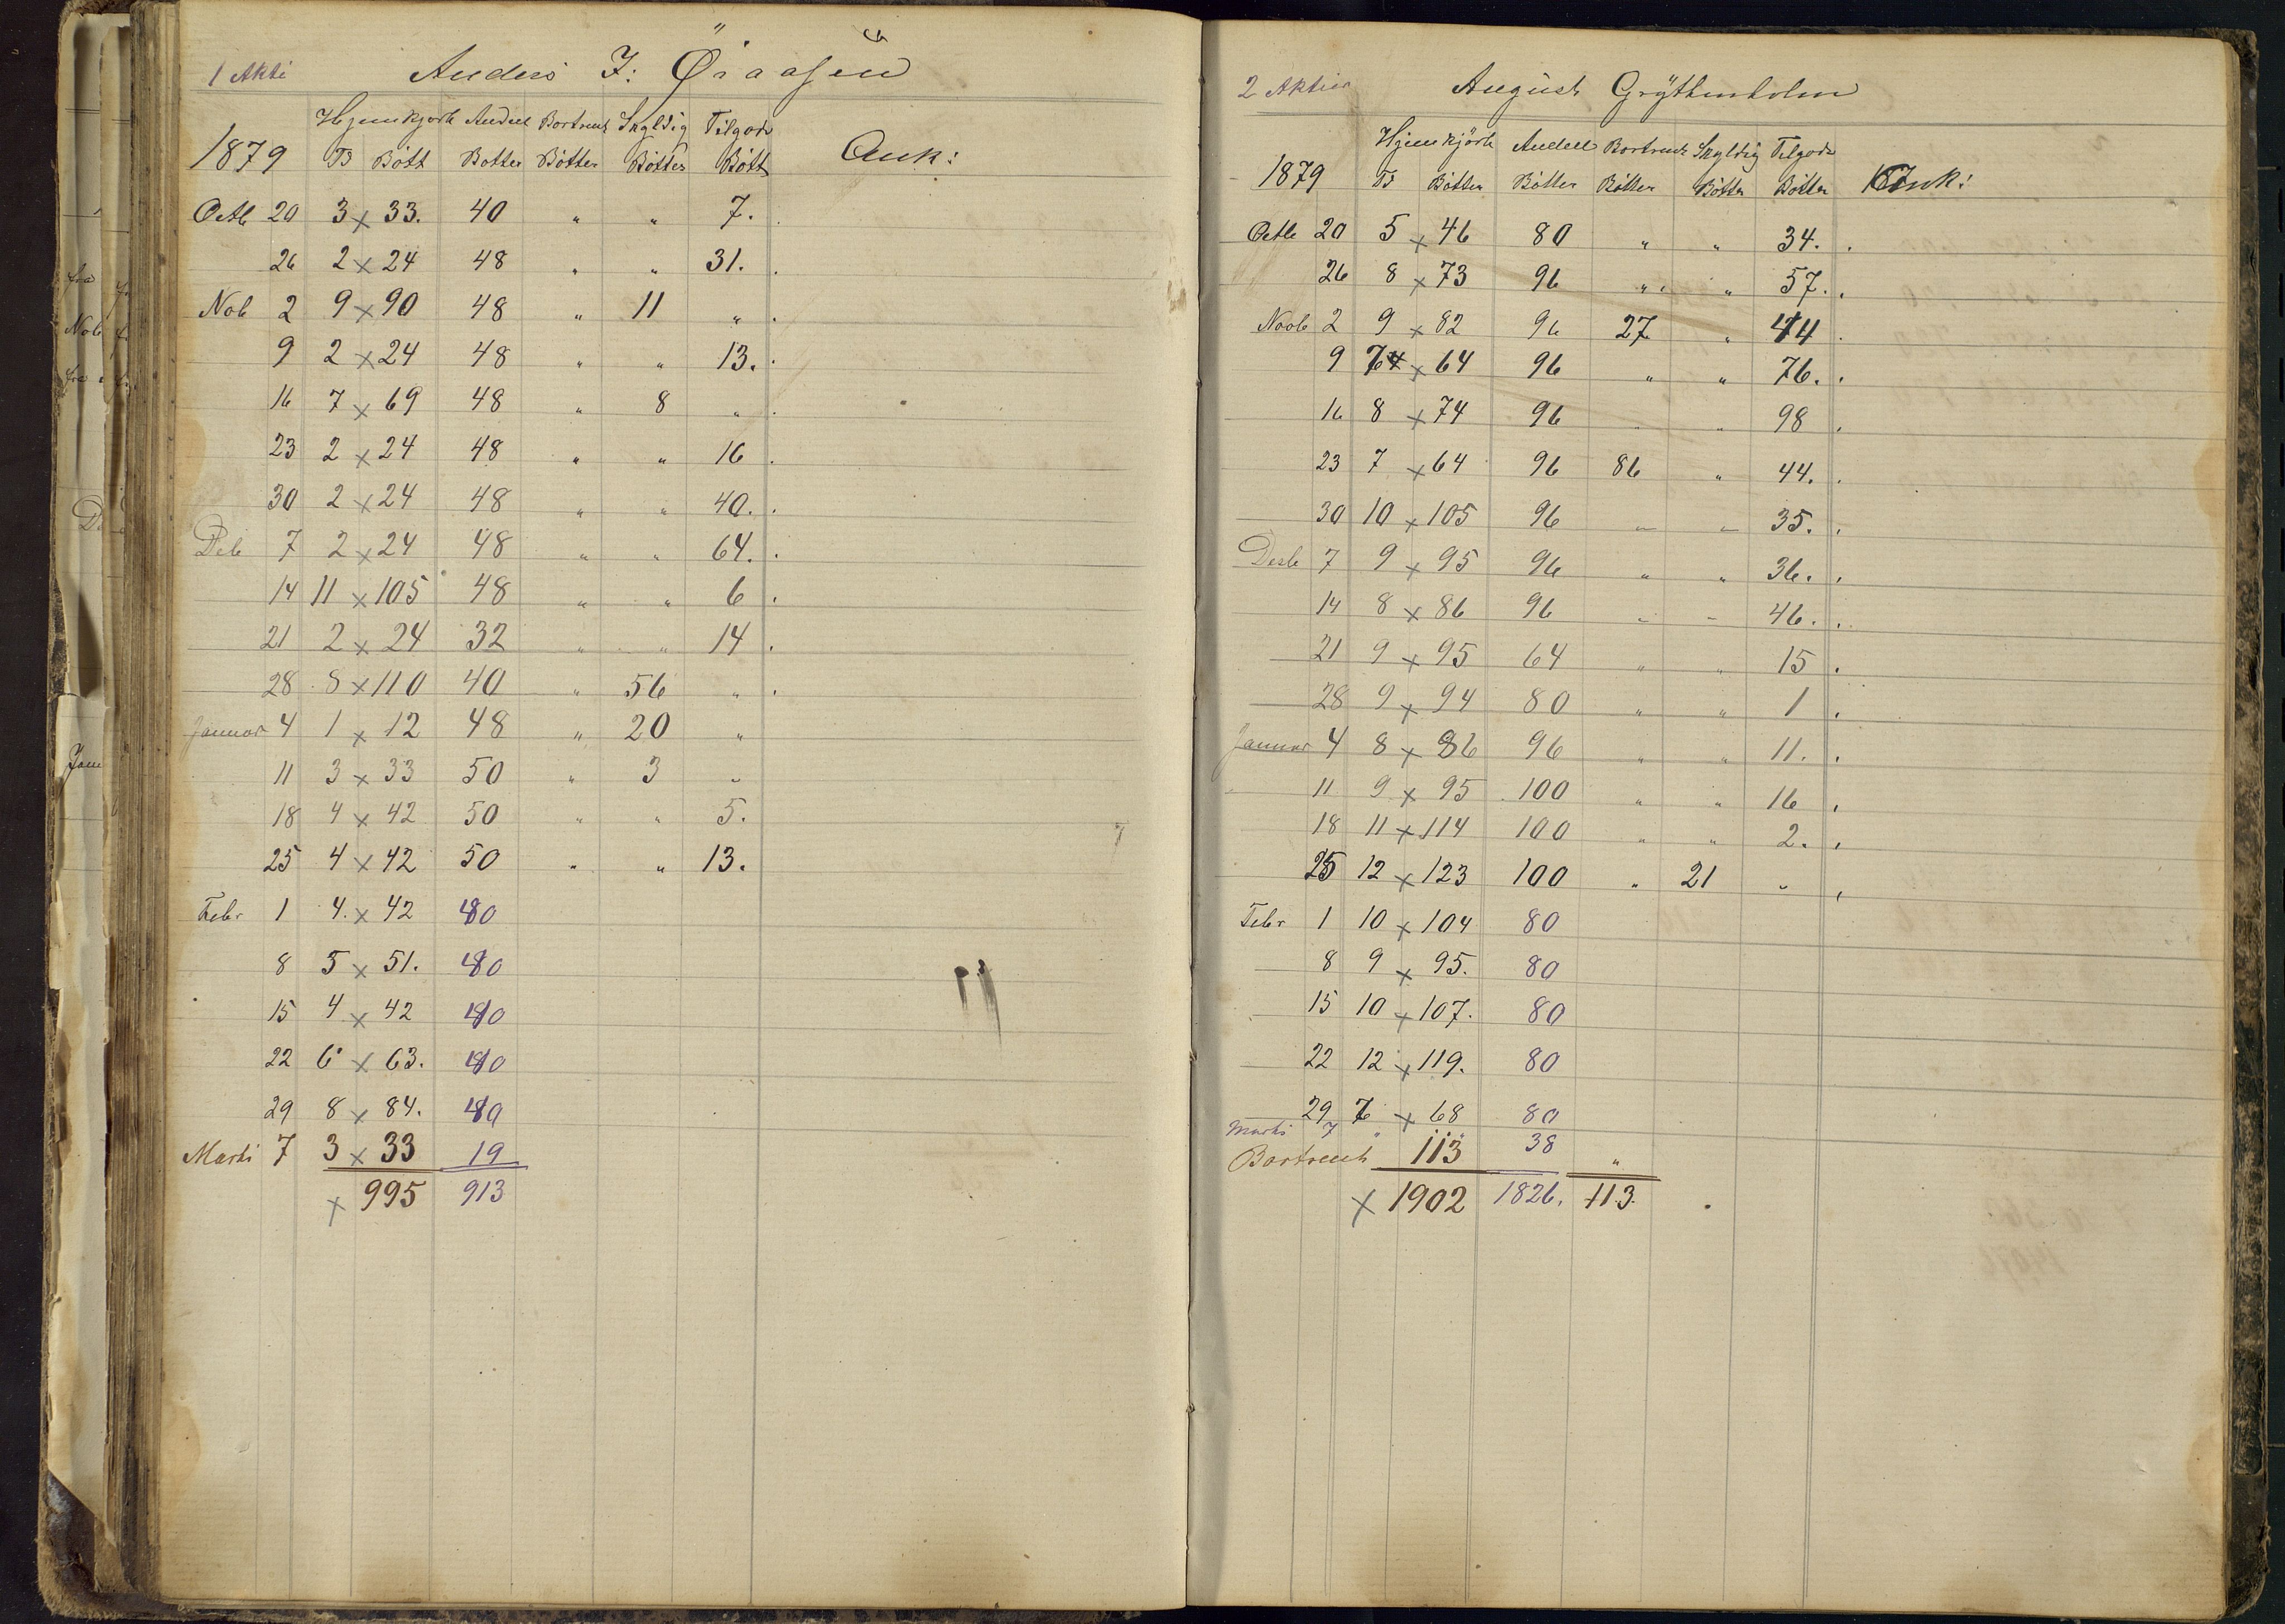 1 Akti Anders J: Öiaasen
Hjemkjørte Andeel Bortrent Skyldig Tilgode
1879 TS Bött Bötter Bötter Bötter Bött Ank:
Octb 20 3 x 33. 40 " " 7.
26 2 x 24 48 " " 31.
Nob 2 9 x 90 48 " 11 "
9 2 x 24 48 " " 13.
16 7 x 69 48 " 8 "
23 2 x 24 48 " " 16
30 2 x 24 48 " " 40.
Deb 7 2 x 24 48 " " 64.
14 11 x 105 48 " " 6
21 2 x 24 32 " " 14
28 8 x 110 40 " 56 "
Januar 4 1 x 12 48 " 20 "
11 3 x 33 50 " 3 "
18 4 x 42 50 " " 5.
25 4 x 42 50 " " 13.
Febr 1 4. x 42 40
8 5 x 51. 40
15 4 x 42 40
22 6 x 63. 40
29 8 x 84. 40
Marti 7 3 x 33 19
x 995 913
2 Aktier August Gryttenholm
Hjemkjörte Andeel Bortrent Skyldig Tilgode
1879 TS Bötter Bötter Bötter Bötter Bötter Ank:
Octb 20 5 x 46 80 " " 34.
26 8 x 73 96 " " 57.
Novb 2 9 x 82 96 27 " 44
9 7 x 64 96 " " 76.
16 8 x 74 96 " " 98
23 7 x 64 96 86 " 44.
30 10 x 105 96 " " 35.
Desb 7 9 x 95 96 " " 36.
14 8 x 86 96 " " 46.
21 9 x 95 64 " " 15
28 9 x 94 80 " " 1
Januar 4 8 x 86 96 " " 11.
11 9 x 95 100 " " 16
18 11 x 114 100 " " 2.
25 12 x 123 100 " 21 "
Febr 1 10 x 104 80
8 9 x 95. 80
15 10 x 107. 80
22 12 x 119. 80
29 7 x 68 80
Marti 7 " 38
Bortrent 113 "
x 1902 1826. 113.